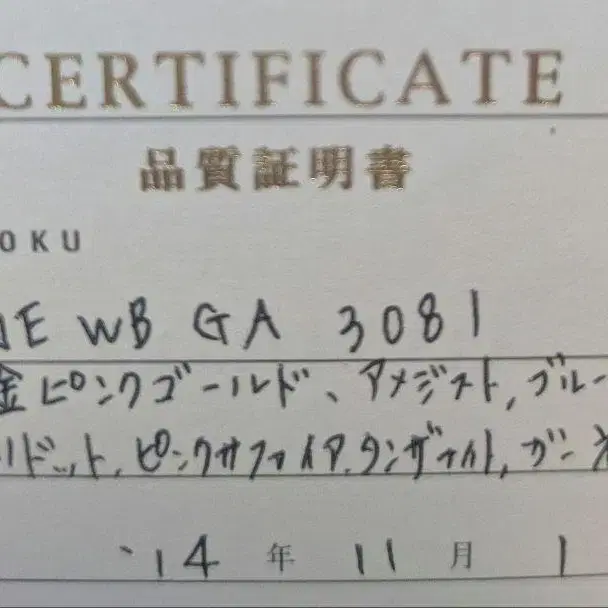 CERTIFICATE
品質証明書
OKU
E WB GA 3081
金ピンクゴールド、アメジスト,ブルー
リドット,ピンクサファイア,タンザナイト,ガー
'14年 11月 1